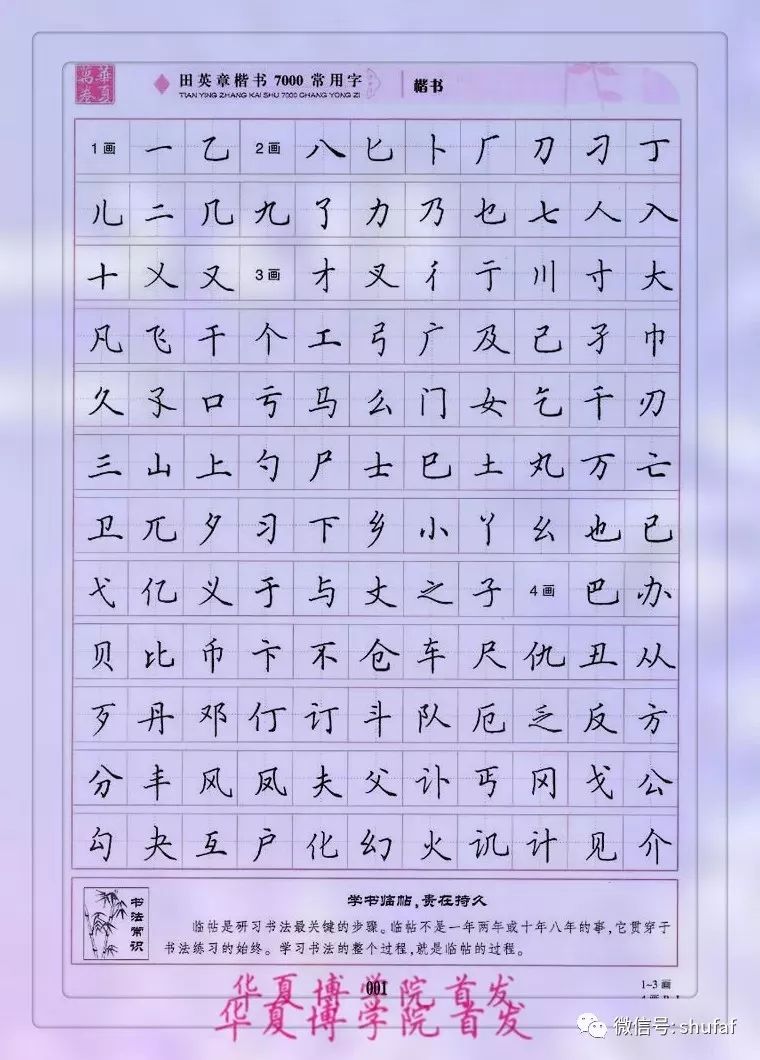 萬卷 華夏
田英章楷书 7000 常用字 楷书
TIAN YING ZHANG KAI SHU 7000 CHANG YONG ZI
1画 一 乙 2画 八 匕 卜 厂 刀 刁 丁
儿 二 几 九 了 力 乃 乜 七 人 入
十 乂 又 3画 才 叉 彳 亍 川 寸 大
凡 飞 干 个 工 弓 广 及 己 孑 巾
久 孓 口 亏 马 么 门 女 乞 千 刃
三 山 上 勺 尸 士 巳 土 丸 万 亡
卫 兀 夕 习 下 乡 小 丫 幺 也 已
弋 亿 义 于 与 丈 之 子 4画 巴 办
贝 比 币 卞 不 仓 车 尺 仇 丑 从
歹 丹 邓 仃 订 斗 队 厄 乏 反 方
分 丰 风 凤 夫 父 讣 丐 冈 戈 公
勾 夬 互 户 化 幻 火 讥 计 见 介
书法常识
学书临帖,贵在持久
临帖是研习书法最关键的步骤。临帖不是一年两年或十年八年的事,它贯穿于
书法练习的始终。学习书法的整个过程,就是临帖的过程。
001
1~3 画
华夏博学院首发
华夏博学院首发
微信号: shufaf